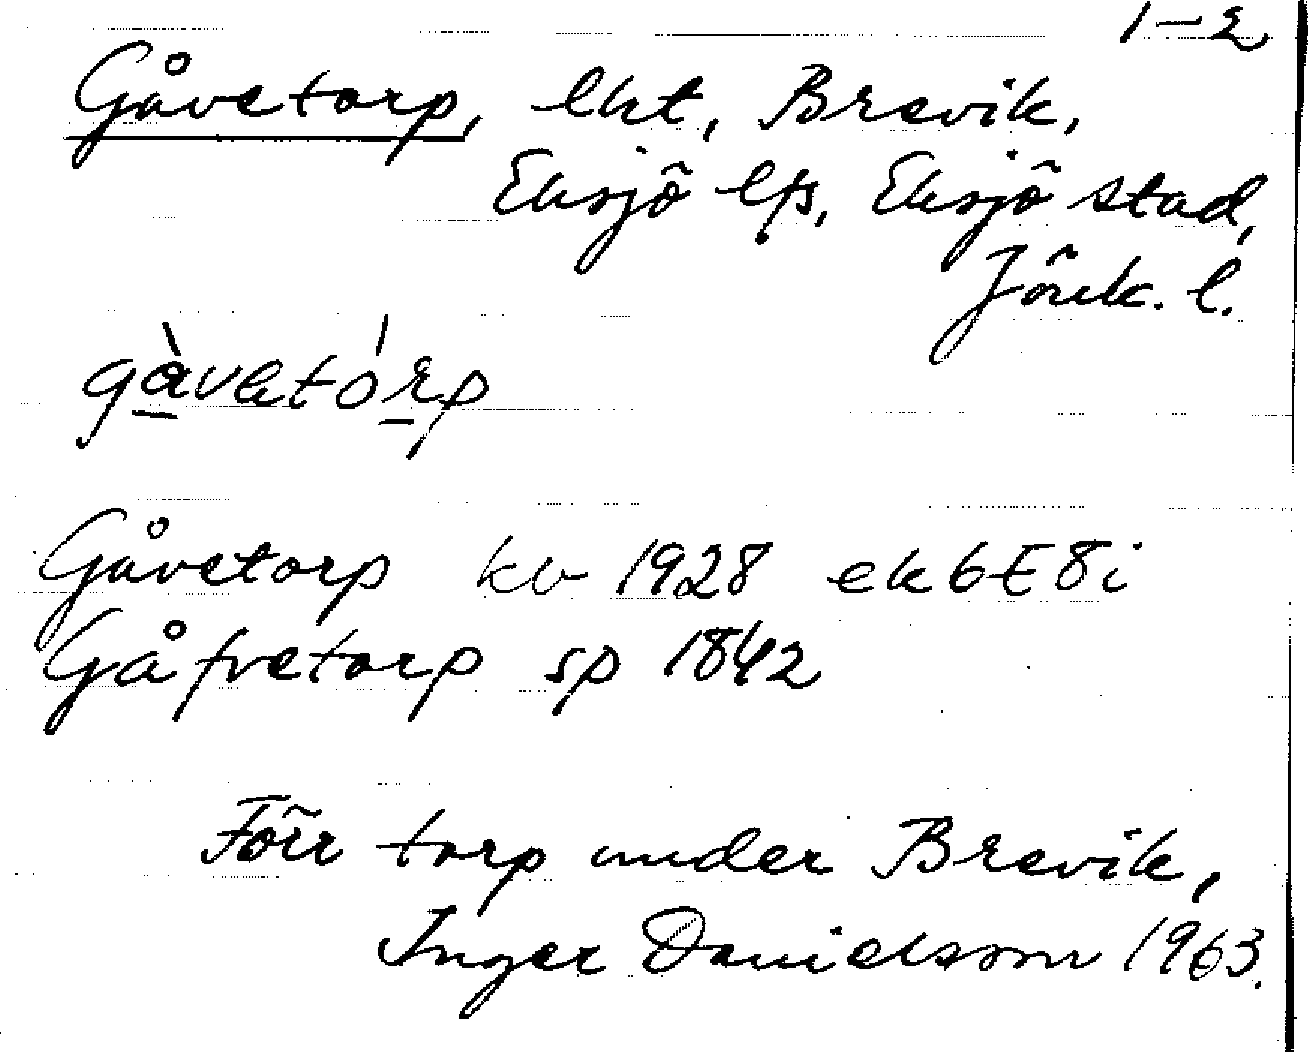 1–2
Gåvetorp, lht, Brevik,
Eksjö lfs, Eksjö stad,
Jönk. l.
gàvetórp
Gåvetorp kv 1928 ek 6E8i
Gåfvetorp sp 1842
Förr torp under Brevik,
Inger Danielsson 1963.